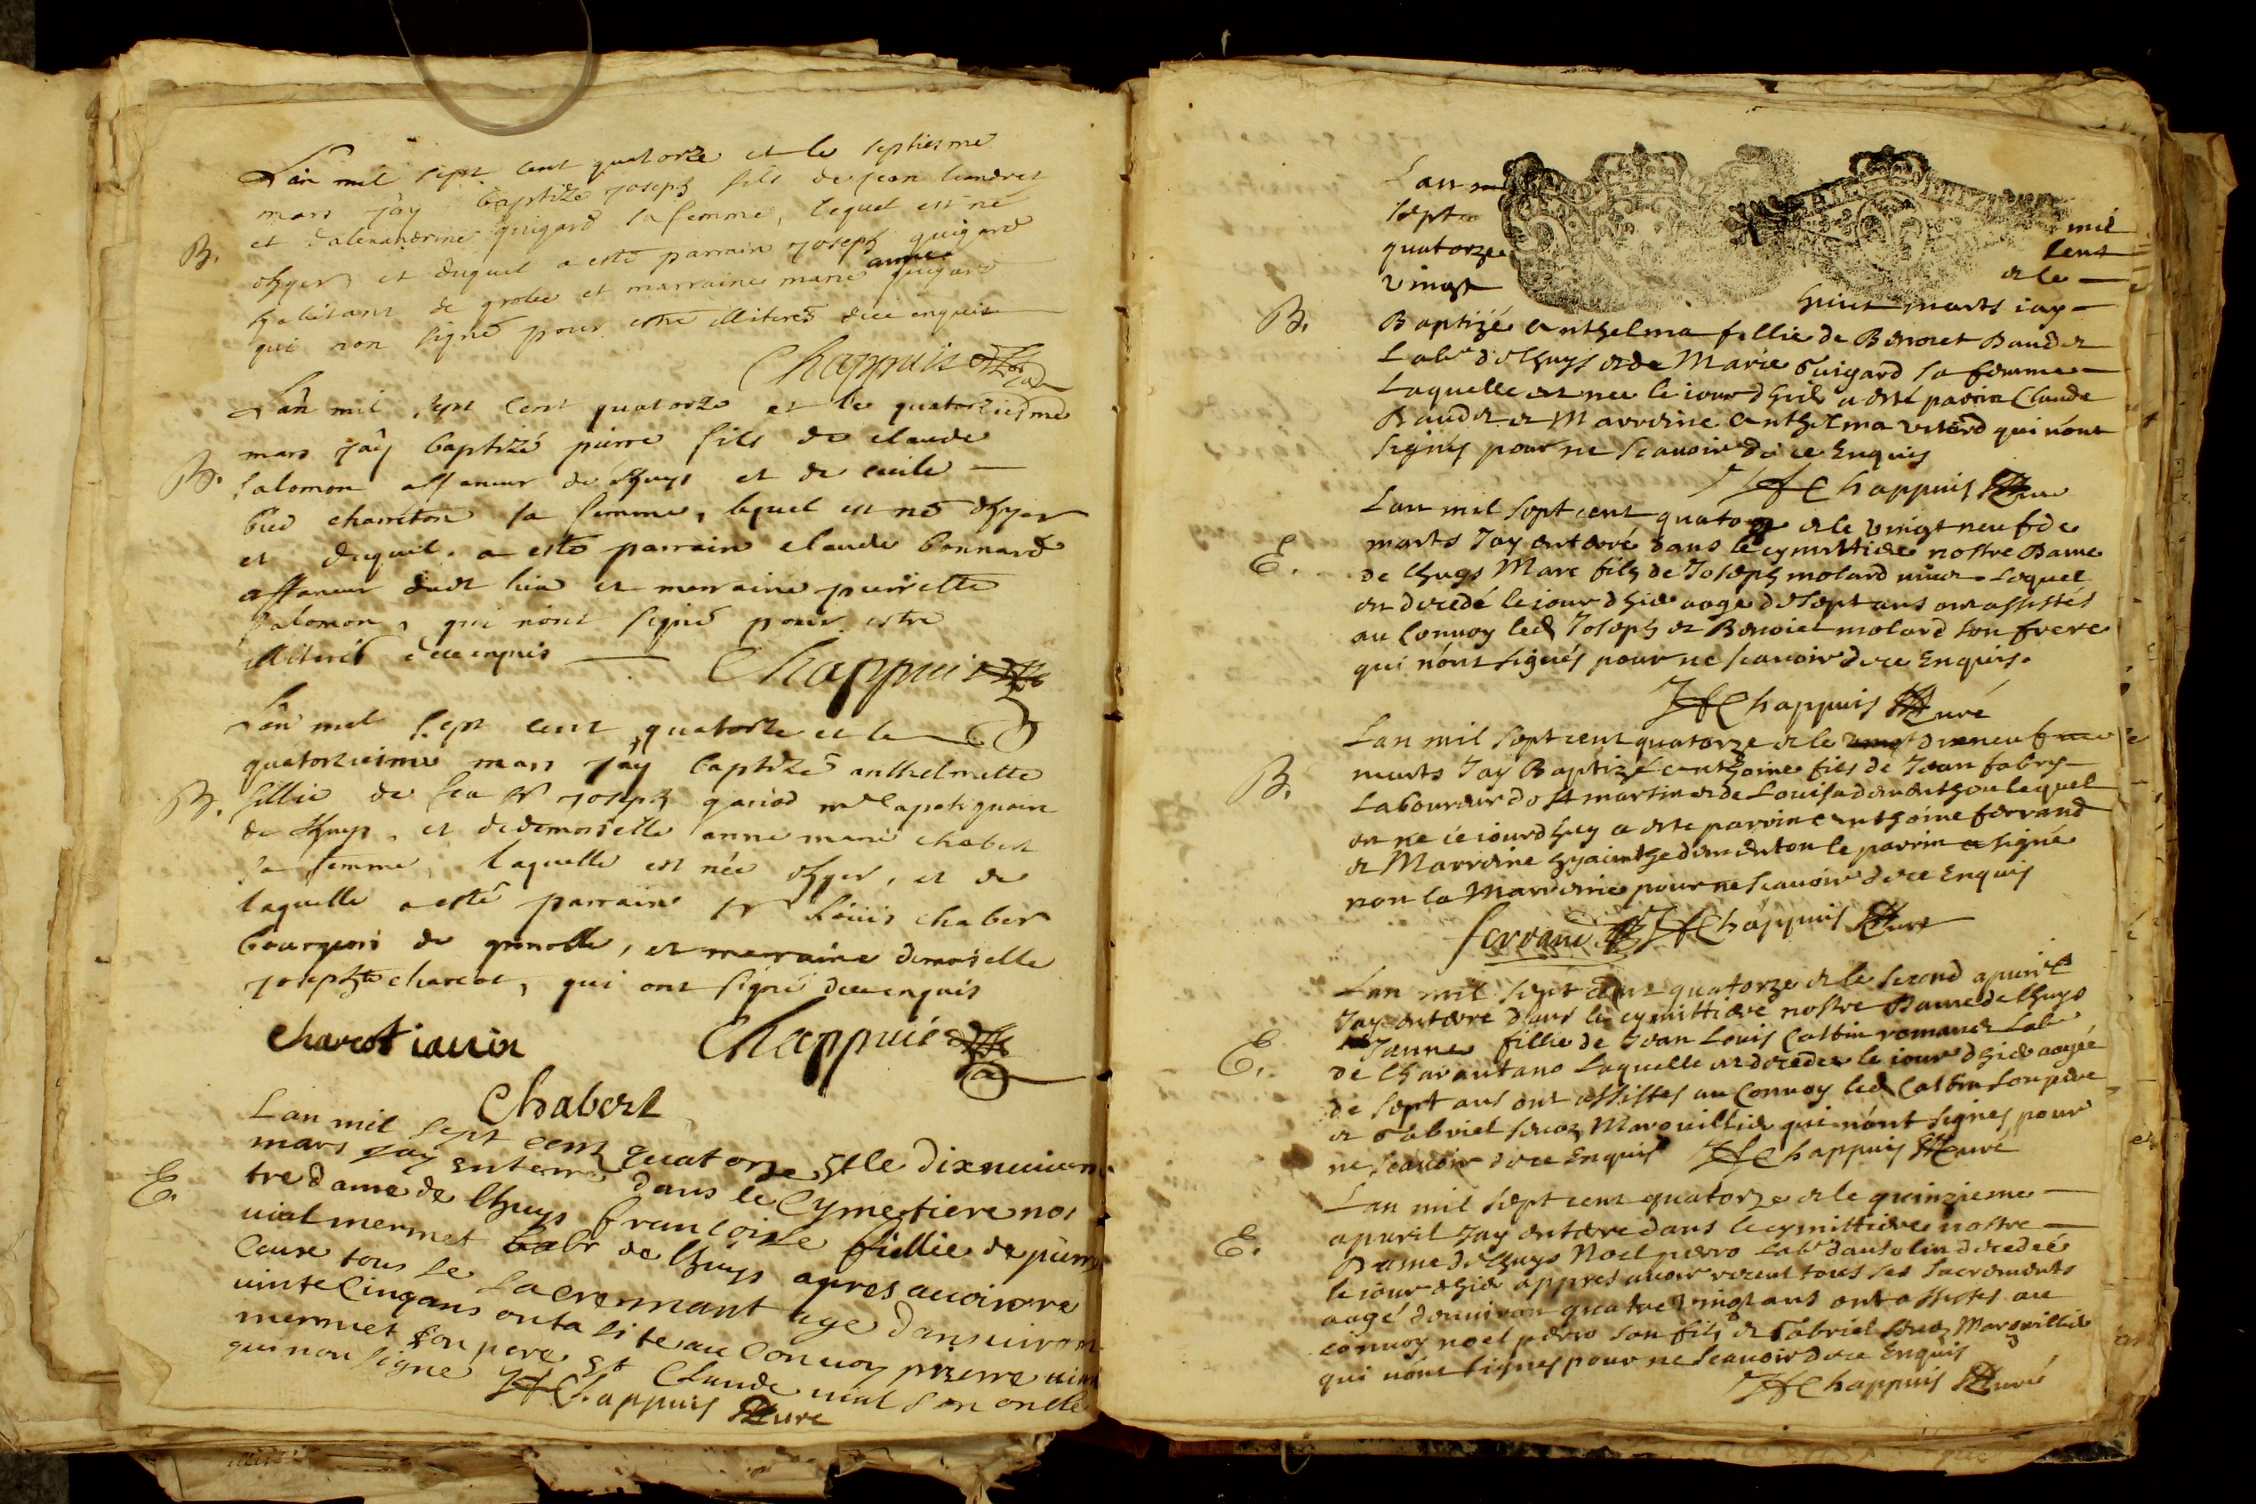 L'an mil sept cent quatorze et le septiesme
mars j'ay baptizé joseph fils de jean
et d'alexandrine guigard sa femme, lequel est né
B.
ohyer et duquel a esté parrain joseph guigard
habitant de et marraine marie anne guigard
qui non signé pour estre illiterés de ce enquis
Chappuis
L'an mil sept cent quatorze et le quatorziesme
mars j'ay baptizé pierre fils de claude
B. salomon affaneur de lhuys et de
charreton sa femme, lequel est né ohyer
et duquel a esté parrain claude bonnard
affaneur dudt lieu et marraine pierrette
salomon, qui n'ont signé pour estre
illiterés de ce enquis Chappuis
L'an mil sept cent quatorze et le
quatorziesme mars j'ay baptizé anthelmette
B. fillie de feu Sr joseph mre apotiquaire
de lhuys, et de demoiselle anne marie chabert
sa femme, laquelle est née ohyer, et de
laquelle a esté parrain Sr Louis chabert
bourgeois de grenoble, et marraine demoiselle
josephte charcot, qui ont signé de ce enquis
charcot Chappuis
Chabert
Lan mil sept cent quatorze Et le
mars jay Enterré dans le Cymetiere nos
E. tre dame de lhuys francoise fillie de pierre
uial mermet labr de lhuys apres auoir re
ceux tous se sacremant age danuiron
uinte Cinq ans au Conuoy pierre uial
mermet son pere Et Claude uial son oncle
qui non signe Chappuis Curé
Lan mil
sept cent
quatorze et le
vingt huict marts iay
B. Baptizé Anthelma fillie de Benoict Baudet
Labr de Lhuys et de Marie Guigard sa femme
Laquelle est nee le iour d'hier a esté parrin Claude
Baudet et Marrerine Anthelma qui n'ont
signés pour ne scauoir de ce Enquis
Chappuis Curé
Lan mil sept cent quatorze et le vingt neufde
marts Jay enterré dans le cymittiere nostre Dame
E. de Lhuys Marc fils de Joseph molard Lequel
est decedé le iour d'hier aagé de sept ans ont assistés
au Conuoy led Joseph et Benoict molard son frere
qui n'ont signés pour ne scauoir de ce Enquis.
Chappuis Curé
Lan mil sept cent quatorze et le dixneuf
B. marts Jay Baptizé anthoine fils de Jean fabry
Laboureur de St martin et de Louisa lequel
est né ce iourd'huy a esté parrin anthoine ferrand
et Marrerine hyacinthe le parrin a signé
non la Marrerine pour ne scauoir de ce Enquis
ferrand Chappuis Curé
Lan mil sept cent quatorze et le second apuril
Jay enterré dans le cymittiere nostre Dame de Lhuys
E. Janne fillie de Jean Louis Calbin Labr
de Charantano Laquelle est decedée le iour d'hier aagée
de sept ans ont assistés au Conuoy led Calbin son pere
et Gabriel Marguillier qui n'ont signés pour
ne scauoir de ce Enquis Chappuis Curé
Lan mil sept cent quatorze et le quinzieme
E. apuril Jay enterré dans le cymittiere nostre
Dame de Lhuys Noel perro Labr decedéé
le iour d'hier appres auoir receut tous les Sacrements
aagé d'enuiron quatre vingt ans ont assistés au
conuoy noel perro son fils et Gabriel Marguillier
qui n'ont signés pour ne Scauoir de ce Enquis
Chappuis Curé